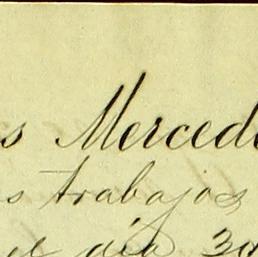 s Mercede
s trabajos
el día 30